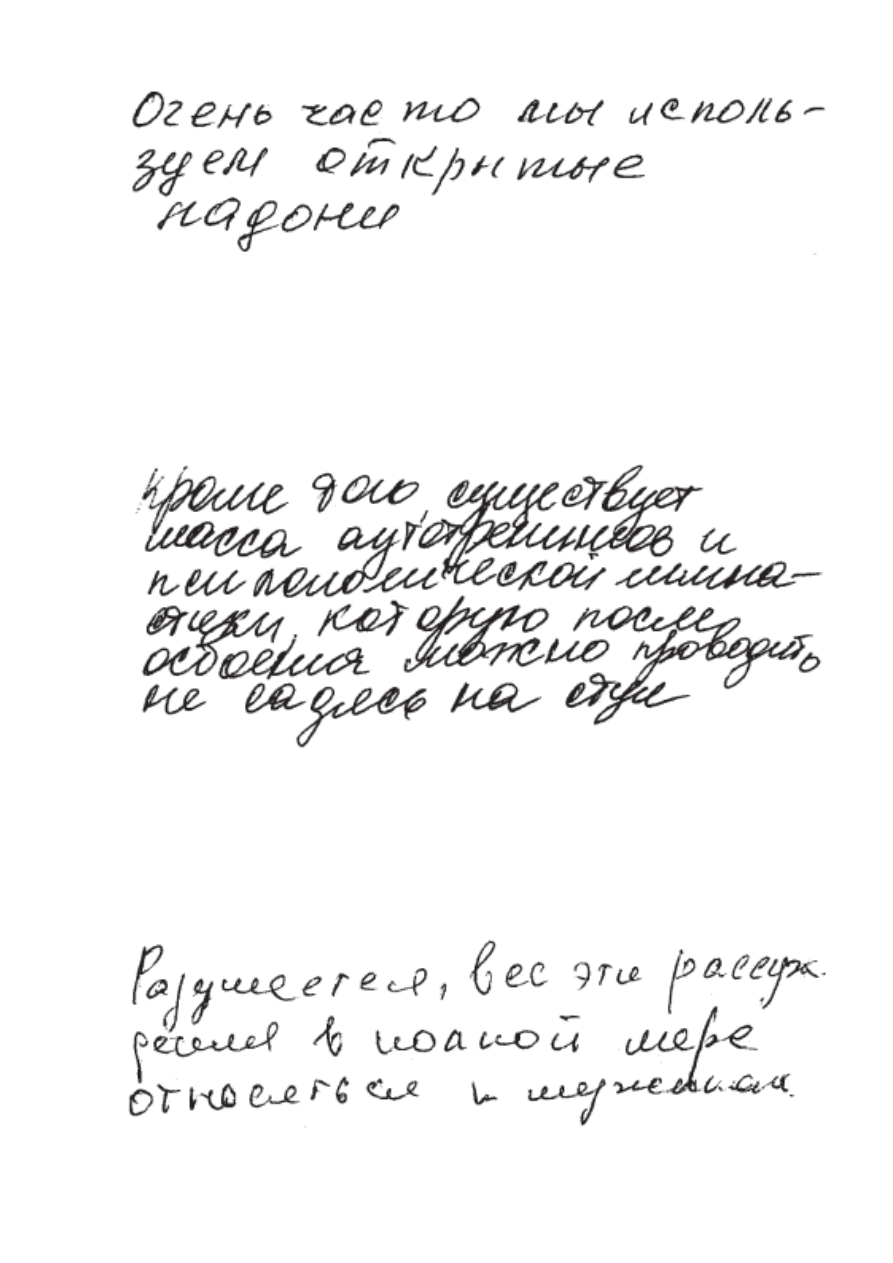 Очень часто мы исполь-
зуем открытые
ладони
Кроме того, существует
масса аутотренингов и
психологической гимна-
стики, которую после
освоения можно проводить
не садясь на стул
Разумеется, все эти рассуж-
дения в полной мере
относяться к мужчинам.